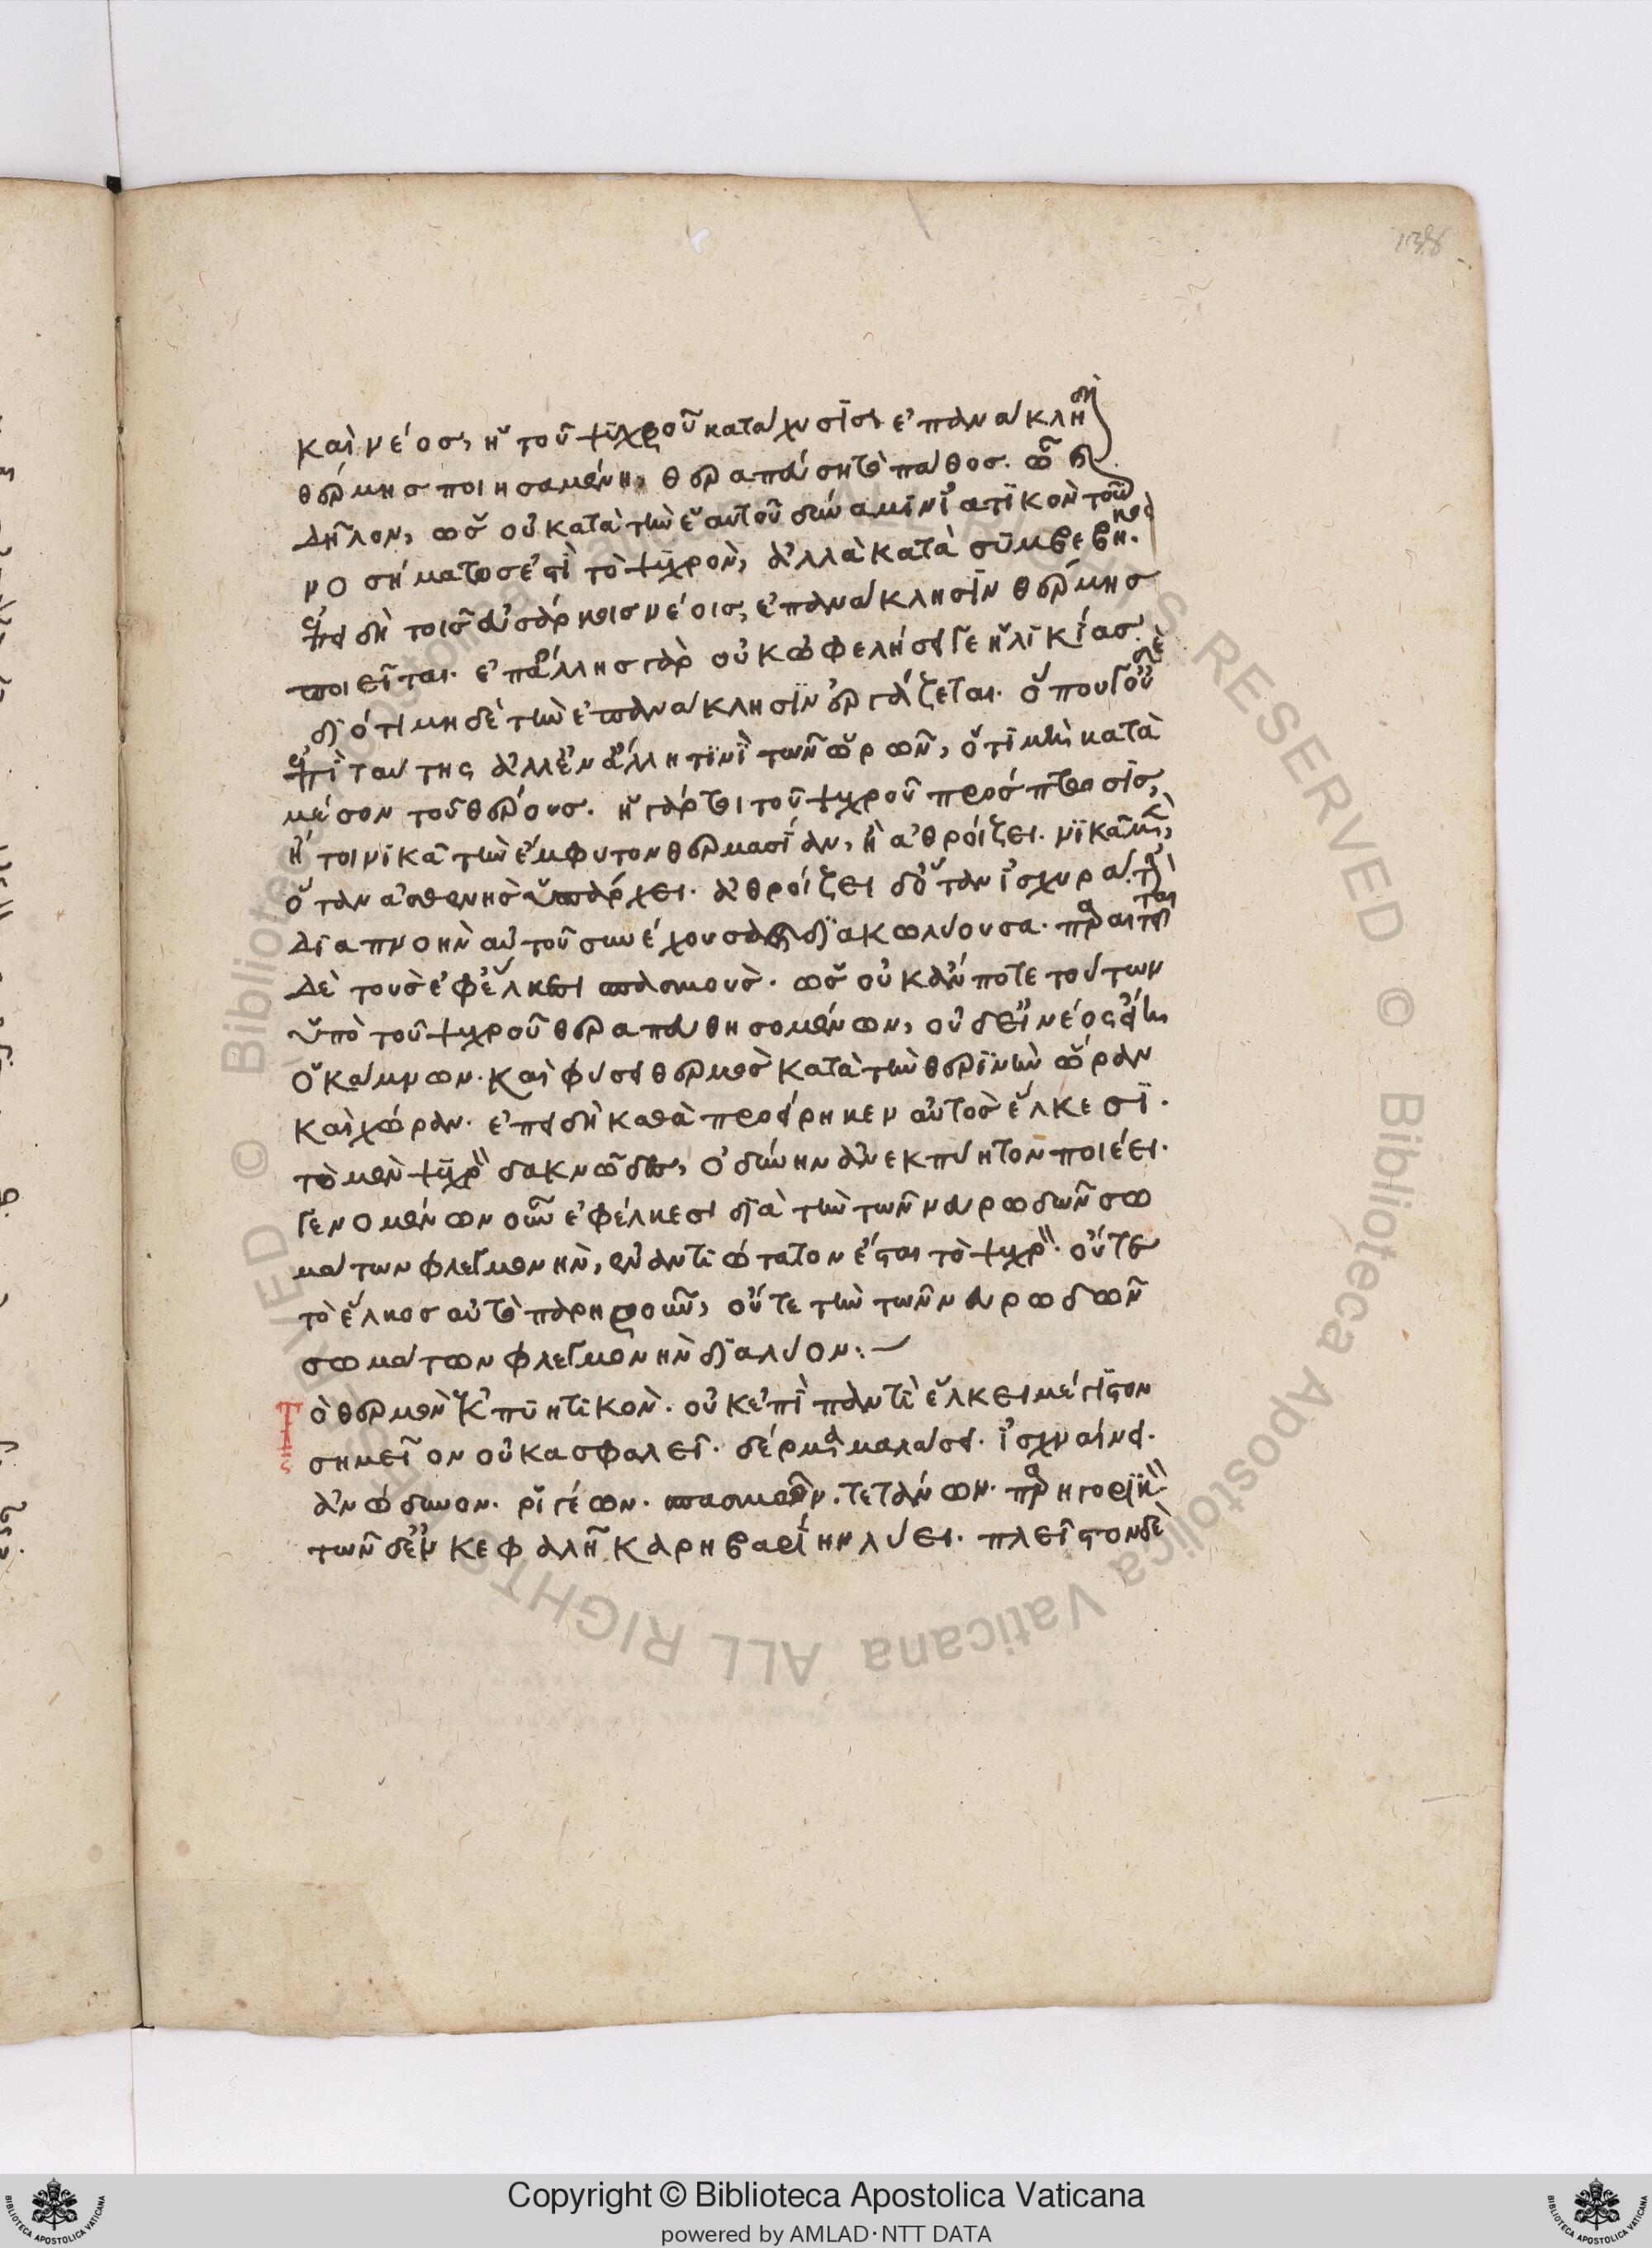 138
καὶ νέος, ἡ τοῦ ψυχροῦ κατάχυσις ἐπανάκλησιν
θέρμης ποιησαμένη, θεραπεύση τὸ πάθος. ὧ
δῆλον, ὡς οὐ κατὰ τὴν ἑαυτοῦ δύναμιν ἰατικὸν τοῦ
νοσήματος ἐστὶ τὸ ψυχρὸν, ἀλλὰ κατὰ συμβεβηκός.
ἐπειδὴ τοῖς εὐσάρκοις νέοις, ἐπανάκλησιν θέρμης
ποιεῖται. ἐπ' ἄλλης γὰρ οὐκ ὠφελήσειεν ἡλικίας.
διότι μηδὲ τὴν ἐπανάκλησιν ἐργάζεται. ὅπου γ' οὐδὲ
ἐπὶ ταύτης ἀλλ' ἐν ἄλλη τινὶ τῶν ὡρῶν, ὅτι μὴ κατὰ
μέσον τοῦ θέρους. ἡ γάρ τοι τοῦ ψυχροῦ πρόσπτωσις,
ἤτοι νικᾶ τὴν ἔμφυτον θερμασίαν, ἢ ἀθροίζει. νικᾶ μὲν,
ὅταν ἀσθενὴς ὑπάρχει. ἀθροίζει δ' ὅταν ἰσχυρά. τὴν
διαπνοὴν αὐτοῦ συνέχουσα διακωλύουσα. παραιτεῖται
δὲ τοὺς ἐφ' ἕλκει σπασμοὺς. ὡς οὐκ ἄν ποτε τούτων
ὑπὸ τοῦ ψυχροῦ θεραπευθησομένων, οὐδ' εἰ νέος εἴη
ὁ κάμνων. καὶ φύσει θερμὸς κατὰ τὴν θερινὴν ὥραν
καὶ χώραν. ἐπειδὴ καθὰ προείρηκεν αὐτὸς ἕλκεσι.
τὸ μὲν ψυχρὸν δακνῶδες, ὀδύνην ἀνεκπύητον ποιέει.
γενομένων οὖν ἐφ' ἕλκεσι διὰ τὴν τῶν νευρωδῶν σω
μάτων φλεγμονὴν, ἐναντιώτατον ἔσται τὸ ψυχρὸν. οὔτε
τὸ ἕλκος αὐτὸ παρηγοροῦν, οὔτε τὴν τῶν νευρωδῶν
σωμάτων φλεγμονὴν διαλύον:—
Τὸ θερμὸν ἐκπυητικὸν. οὐκ ἐπὶ παντὶ ἕλκει μέγιστον
σημεῖον οὐκ ἀσφαλεῖ. δέρμα μαλάσει. ἰσχναίνει.
ἀνώδυνον. ῥιγέων. σπασμῶν. τετάνων. παρηγορικὸν
τῶν δ' ἐν κεφαλῆ καρηβαρίην λύει. πλεῖστον δὲ
Biblioteca Apostolica Vaticana ALL RIGHTS RESERVED ©
Copyright © Biblioteca Apostolica Vaticana
powered by AMLAD·NTT DATA